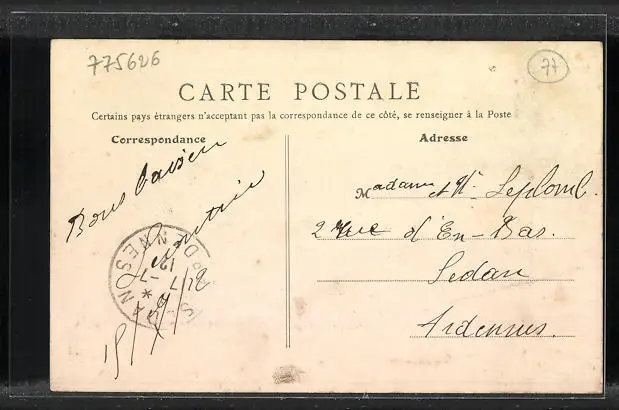 775626
77
CARTE POSTALE
Certains pays étrangers n'acceptant pas la correspondance de ce côté, se renseigner à la Poste
Correspondance
Adresse
Bons baisers
Madame et Mr Leplomb.
2 rue d'En-Bas.
Sedan
Ardennes.